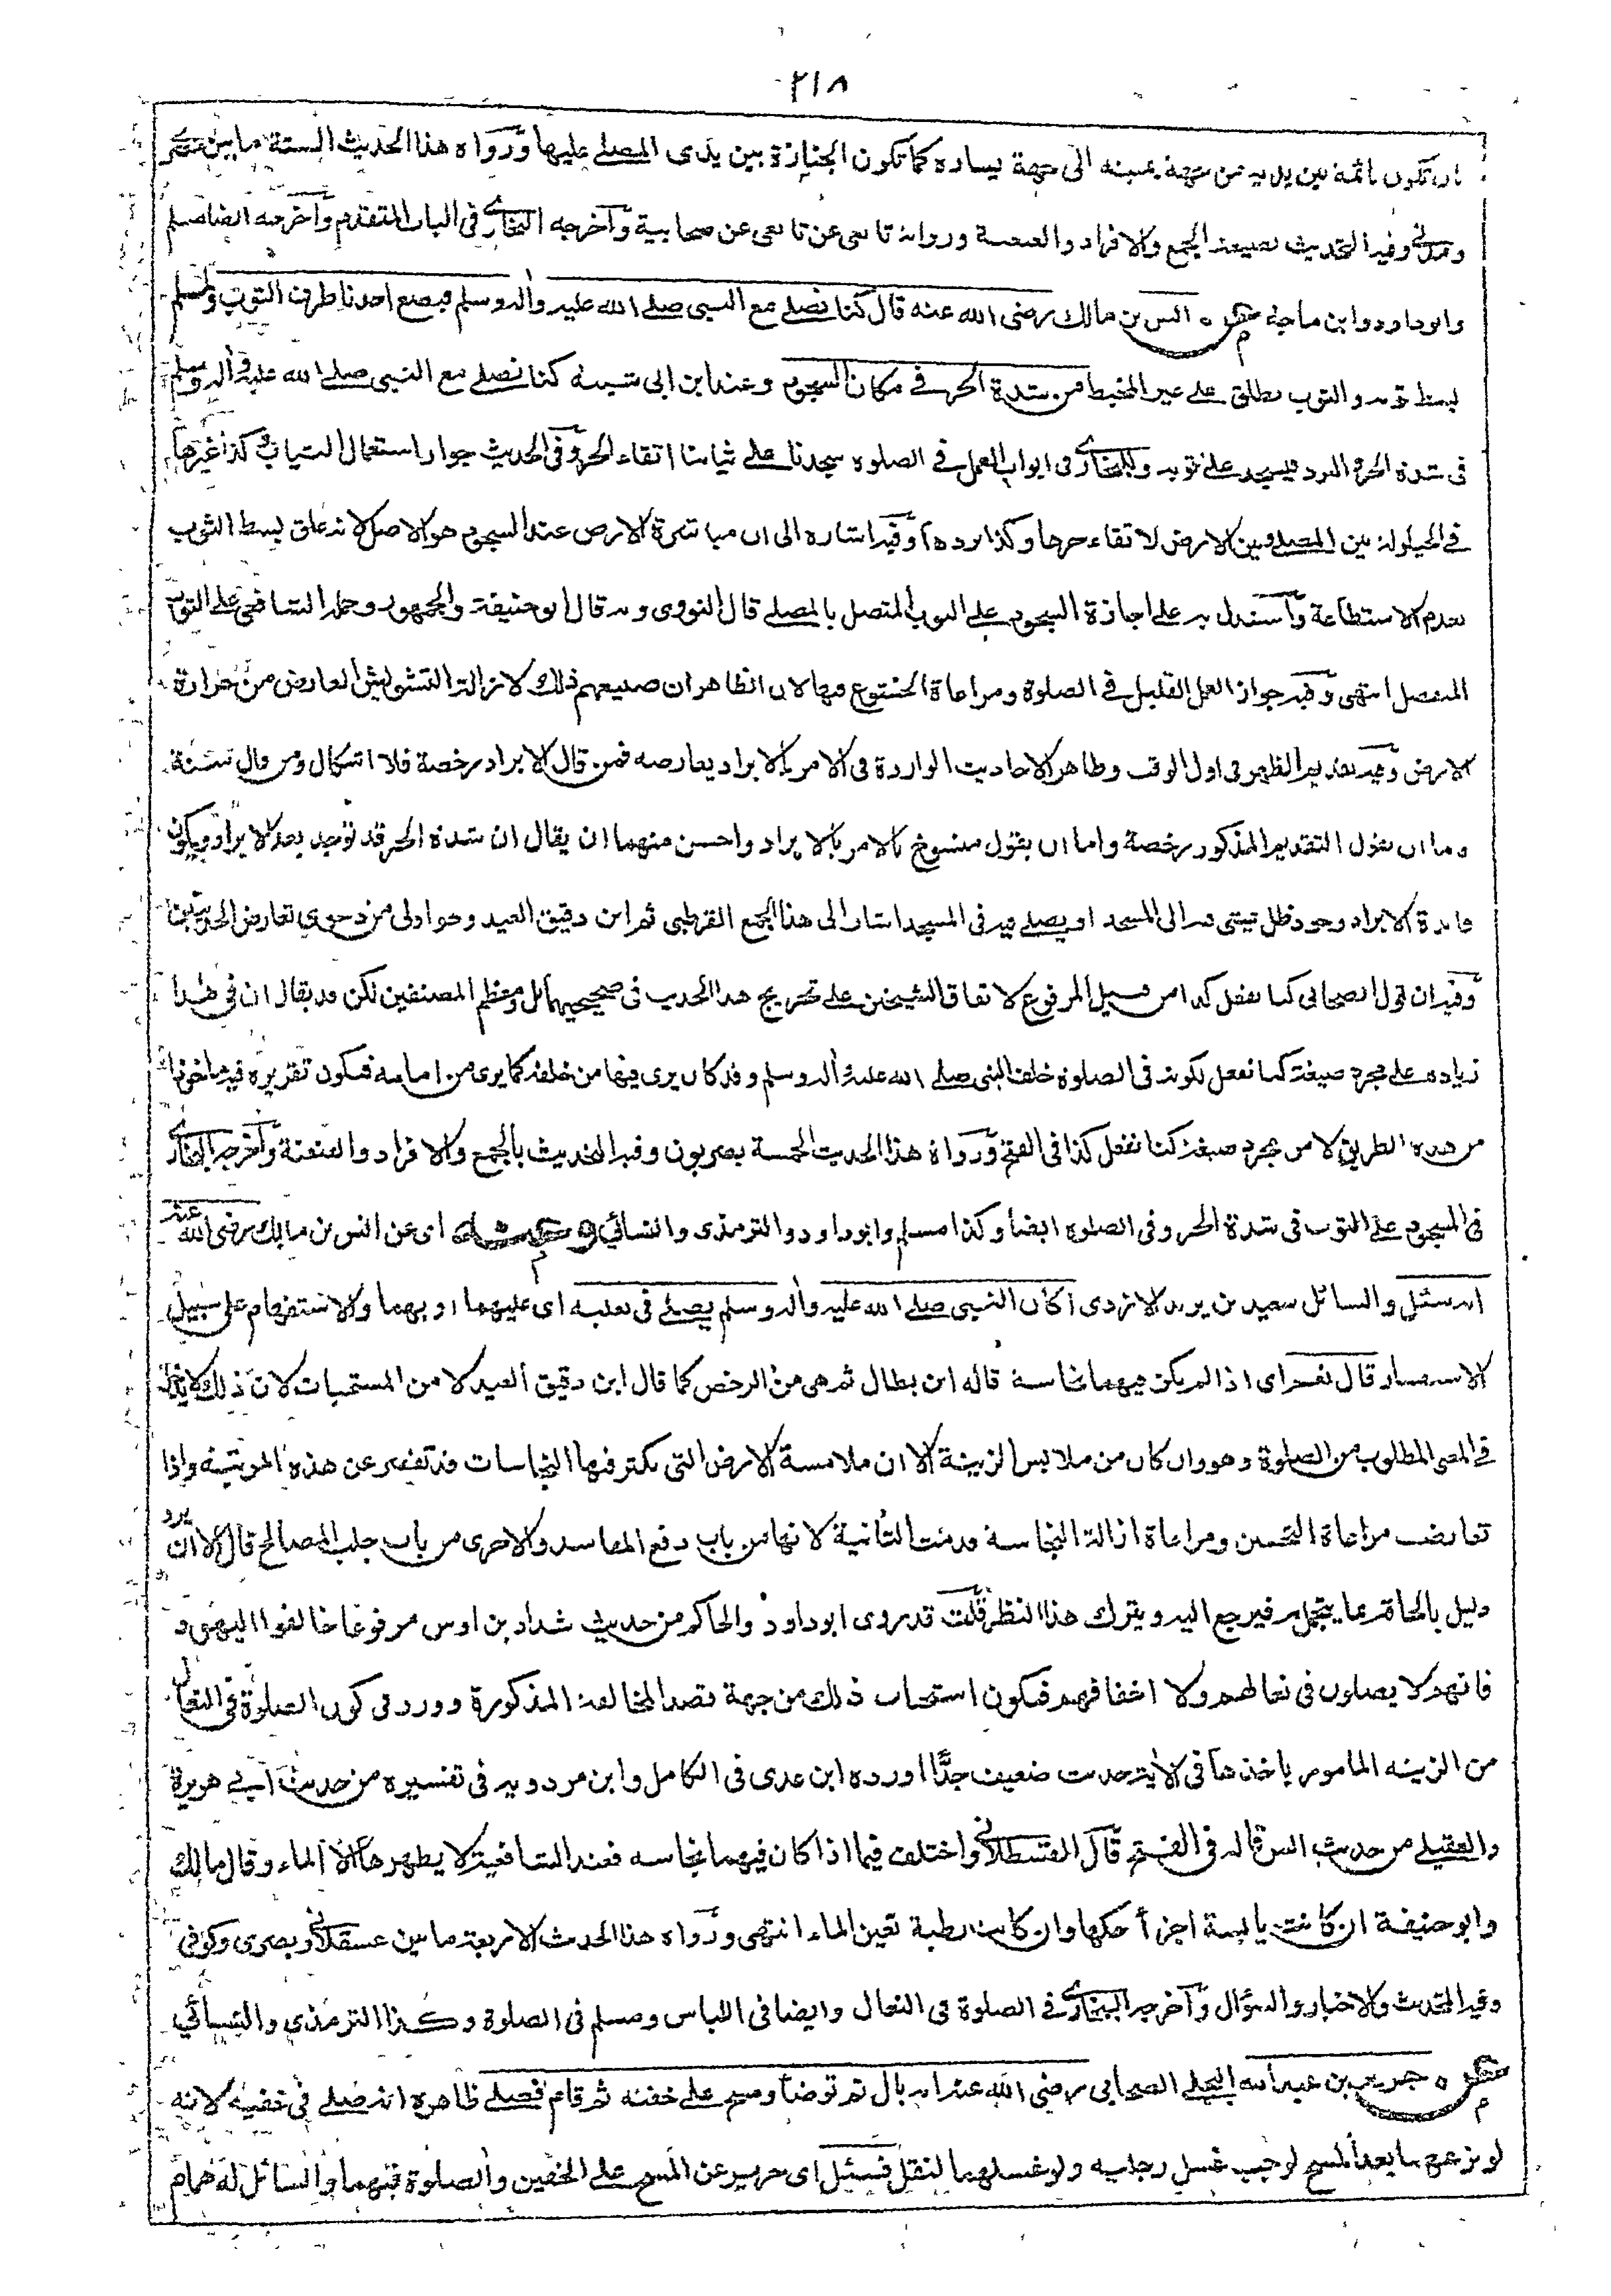 ٢١٨
ان تكون نائمة بين يديه من جهة يمينه الى جهة يساره كما تكون الجنازة بين يدى المصلے عليها ورواة هذا الحديث الستة ما بين
ومدنے وفيه التحديث بصيغة الجمع والافراد والعنعنة ورواية تابعى عن تابعى عن صحابية وآخرجه البخارے فى الباب المتقدم وآخرجه ايضا مسلم
وابوداود وابن ماجة عن انس بن مالك رضى الله عنه قال كنا نصلے مع النبى صلے الله عليه وأله وسلم فيضع احدنا طرف الثوب ولمسلم
بسط ثوبه والثوب يطلق علے غير المخيط من شدة الحر فے مكان السجود وعند ابن ابى شيبة كنا نصلے مع النبى صلے الله عليه وأله وسلم
فى شدة الحر والبرد فيسجد علے ثوبه وللبخارے فى ابواب العمل فے الصلوة سجدنا علے ثيابنا اتقاء الحر وفى الحديث جواز استعمال الثياب وكذا غيرها
فے الحيلولة بين المصلے وبين الارض لاتقاء حرها وكذا بردها وفيه اشارة الى ان مباشرة الارض عند السجود هو الاصل لانه علق بسط الثوب
بعدم الاستطاعة وآستدل به على اجازة السجود علے الثوب المتصل بالمصلے قال النووى وبه قال ابو حنيفة والجمهور وحمله الشافعى علے الثوب
المنفصل انتهى وفيه جواز العمل القليل فے الصلوة ومراعاة الخشوع فيها لان الظاهر ان صنيعهم ذلك لازالة التشويش العارض من حرارة
الارض وفيه تقديم الظهر فى اول الوقت وظاهر الاحاديث الواردة فى الامر بالابراد يعارضه فمن قال الابراد رخصة فلا اشكال ومن قال سنة
فاما ان يقول التقديم المذكور رخصة واما ان يقول منسوخ بالامر بالابراد واحسن منهما ان يقال ان شدة الحر قد توجد بعد الابراد ويكون
فائدة الابراد وجود ظل يمشى فيه الى المسجد او يصلے فيه فى المسجد اشار الى هذا الجمع القرطبى ثم ابن دقيق العيد وهو اولى من دعوى تعارض الحديثين
وفيه ان قول الصحابى كنا نفعل كذا من قبيل المرفوع لاتفاق الشيخين علے تخريج هذا الحديث فى صحيحيهما بل ومعظم المصنفين لكن قد يقال ان فى هذا
زيادة علے مجرد صيغة كنا نفعل لكونه فى الصلوة خلف النبى صلے الله عليه وأله وسلم وقد كان يرى فيها من خلفه كما يرى من امامه فيكون تقريره فيه ماخوذا
من هذه الطريق لا من مجرد صيغة كنا نفعل كذا فى الفتح ورواة هذا الحديث الخمسة بصريون وفيه التحديث بالجمع والافراد والعنعنة وآخرجه البخارے
فى السجود علے الثوب فى شدة الحر وفى الصلوة ايضا وكذا مسلم وابوداود والترمذى والنسائي وعنه اى عن انس بن مالك رضى الله عنه
انه سئل والسائل سعيد بن يزيد الازدى أكان النبى صلے الله عليه وأله وسلم يصلے فى نعليه اى عليهما او بهما والاستفهام على سبيل
الاستفسار قال نعم اى اذا لم يكن فيهما نجاسة قاله ابن بطال ثم هى من الرخص كما قال ابن دقيق العيد لا من المستحبات لان ذلك لا يدخل
فے المعنى المطلوب من الصلوة وهو وان كان من ملابس الزينة الا ان ملامسة الارض التى يكثر فيها النجاسات قد تقصر عن هذه المرتبة واذا
تعارضت مراعاة التحسين ومراعاة ازالة النجاسة قدمت الثانية لانها من باب دفع المفاسد والاخرى من باب جلب المصالح قال الا ان يرد
دليل بالحاقه بما يتجمل به فيرجع اليه ويترك هذا النظر قلت قد روى ابوداود والحاكم من حديث شداد بن اوس مرفوعا خالفوا اليهود
فانهم لا يصلون فى نعالهم ولا اخفافهم فيكون استحباب ذلك من جهة قصد المخالفة المذكورة وورد فى كون الصلوة فى النعال
من الزينة المامور باخذها فى الاية حديث ضعيف جدًّا اورده ابن عدى فى الكامل وابن مردويه فى تفسيره من حديث ابى هريرة
والعقيلے من حديث انس قاله فى الفتح قال القسطلانے واختلف فيما اذا كان فيهما نجاسة فعند الشافعية لا يطهرها الا الماء وقال مالك
وابو حنيفة ان كانت يابسة اجزأ حكها وان كانت رطبة تعين الماء انتهى ورواة هذا الحديث الاربعة ما بين عسقلانے وبصرى وكوفى
وفيه التحديث والاخبار والسؤال وآخرجه البخارے فے الصلوة فى النعال وايضا فى اللباس ومسلم فى الصلوة وكذا الترمذى والنسائي
عن جرير بن عبد الله البجلے الصحابى رضى الله عنه انه بال ثم توضأ ومسح علے خفيه ثم قام فصلے ظاهره انه صلے فى خفيه لانه
لو نزعهما بعد المسح لوجب غسل رجليه ولو غسلهما لنقل فسئل اى جرير عن المسح علے الخفين والصلوة فيهما والسائل له همام